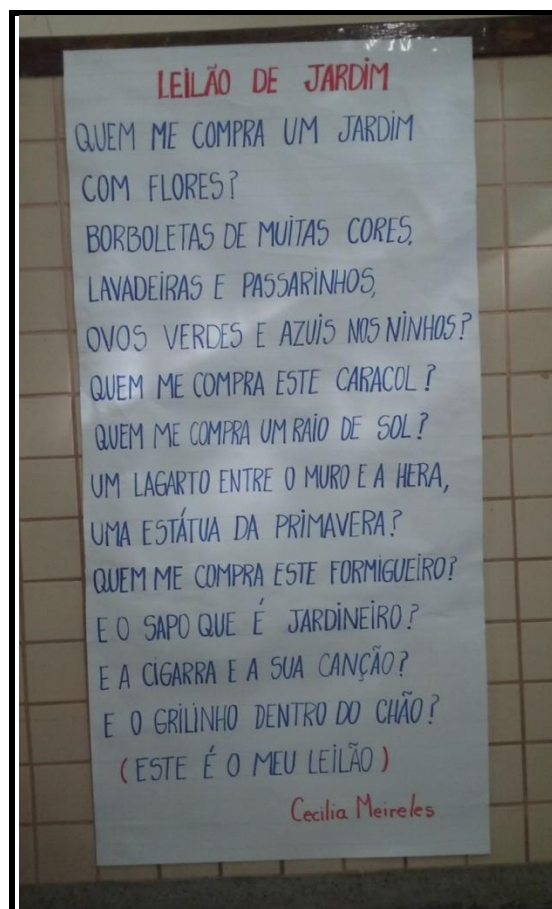 LEILÃO DE JARDIM
QUEM ME COMPRA UM JARDIM
COM FLORES?
BORBOLETAS DE MUITAS CORES,
LAVADEIRAS E PASSARINHOS,
OVOS VERDES E AZUIS NOS NINHOS?
QUEM ME COMPRA ESTE CARACOL?
QUEM ME COMPRA UM RAIO DE SOL?
UM LAGARTO ENTRE O MURO E A HERA,
UMA ESTÁTUA DA PRIMAVERA?
QUEM ME COMPRA ESTE FORMIGUEIRO?
E O SAPO QUE É JARDINEIRO?
E A CIGARRA E A SUA CANÇÃO?
E O GRILINHO DENTRO DO CHÃO?
(ESTE É O MEU LEILÃO)
Cecilia Meireles